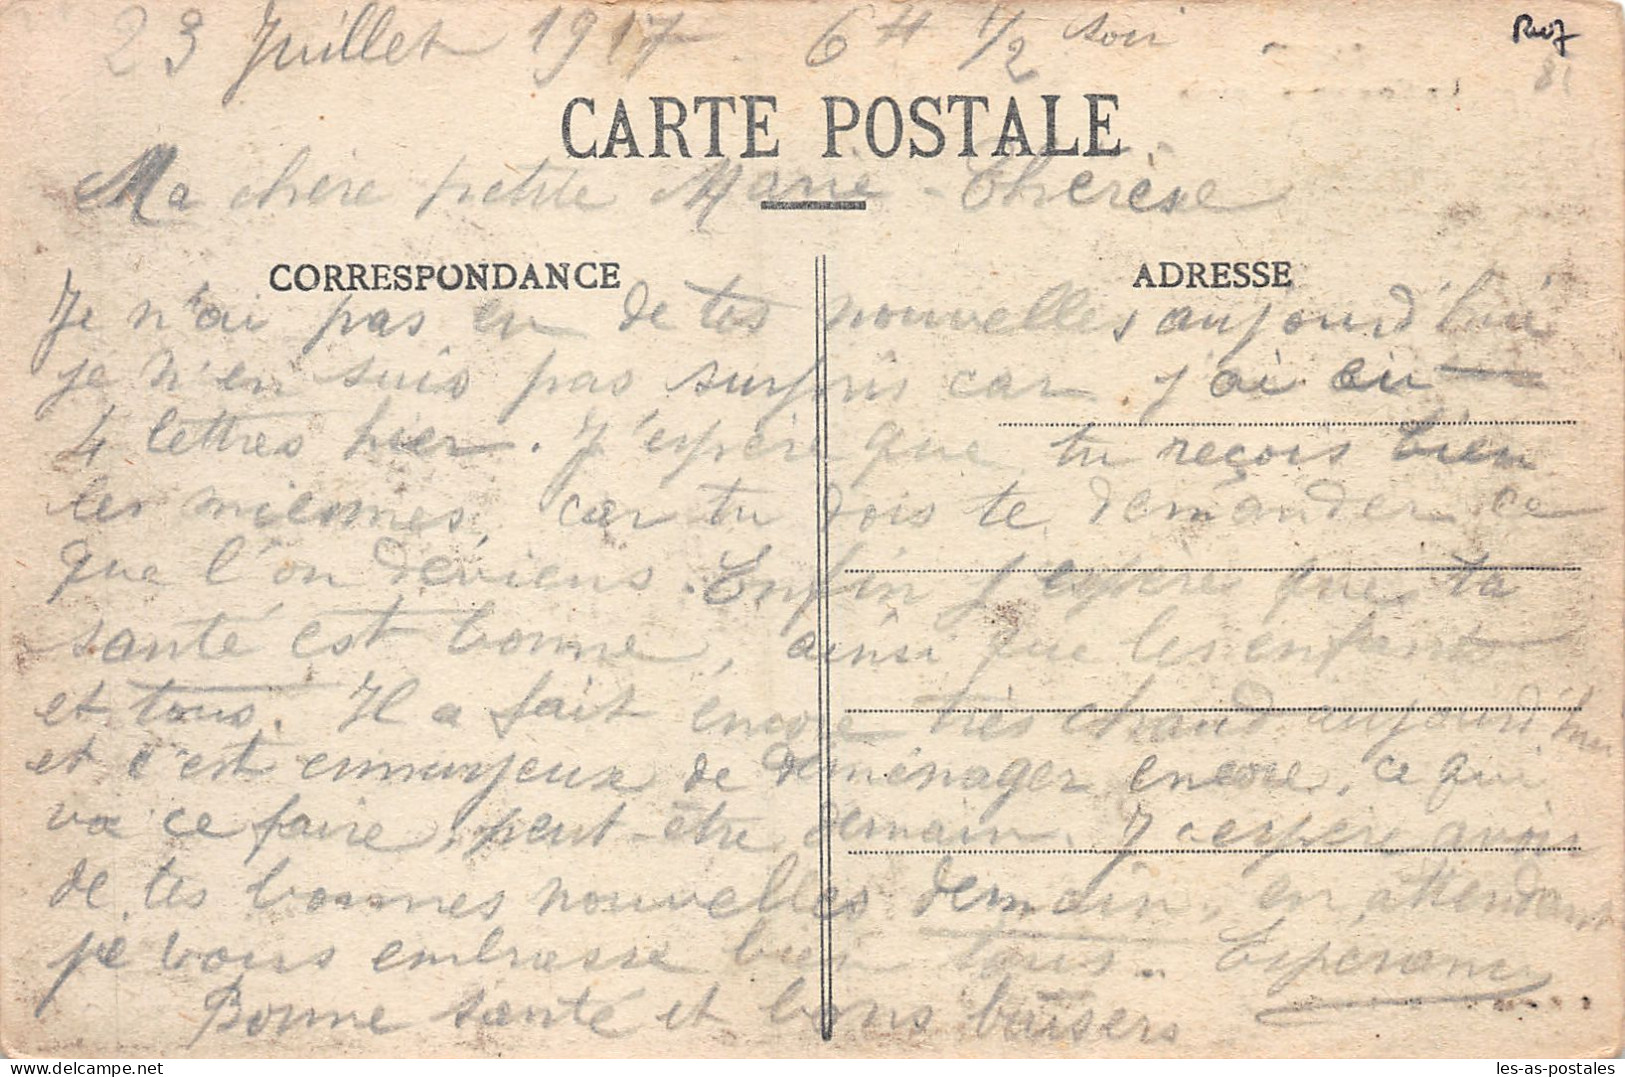 23 Juillet 1917 6H 1/2 soir
CARTE POSTALE
Ma chère petite Marie-Therèse
CORRESPONDANCE
ADRESSE
Je n'ai pas eu de tes nouvelles aujourd'hui
je n'en suis pas surpris car j'ai eu
4 lettres hier. J'espère que tu reçois bien
les miennes, car tu dois te demander ce
que l'on deviens. Enfin j'espère que ta
santé est bonne, ainsi que les enfants
et tous. Il a fait encore très chaud aujourd'hui
et c'est ennuyeux de déménager encore, ce qui
va ce faire peut-être demain. J'espère avoir
de tes bonnes nouvelles demain, en attendant
je vous embrasse bien tous. Espérance
Bonne santé et bons baisers
81
les-as-postales